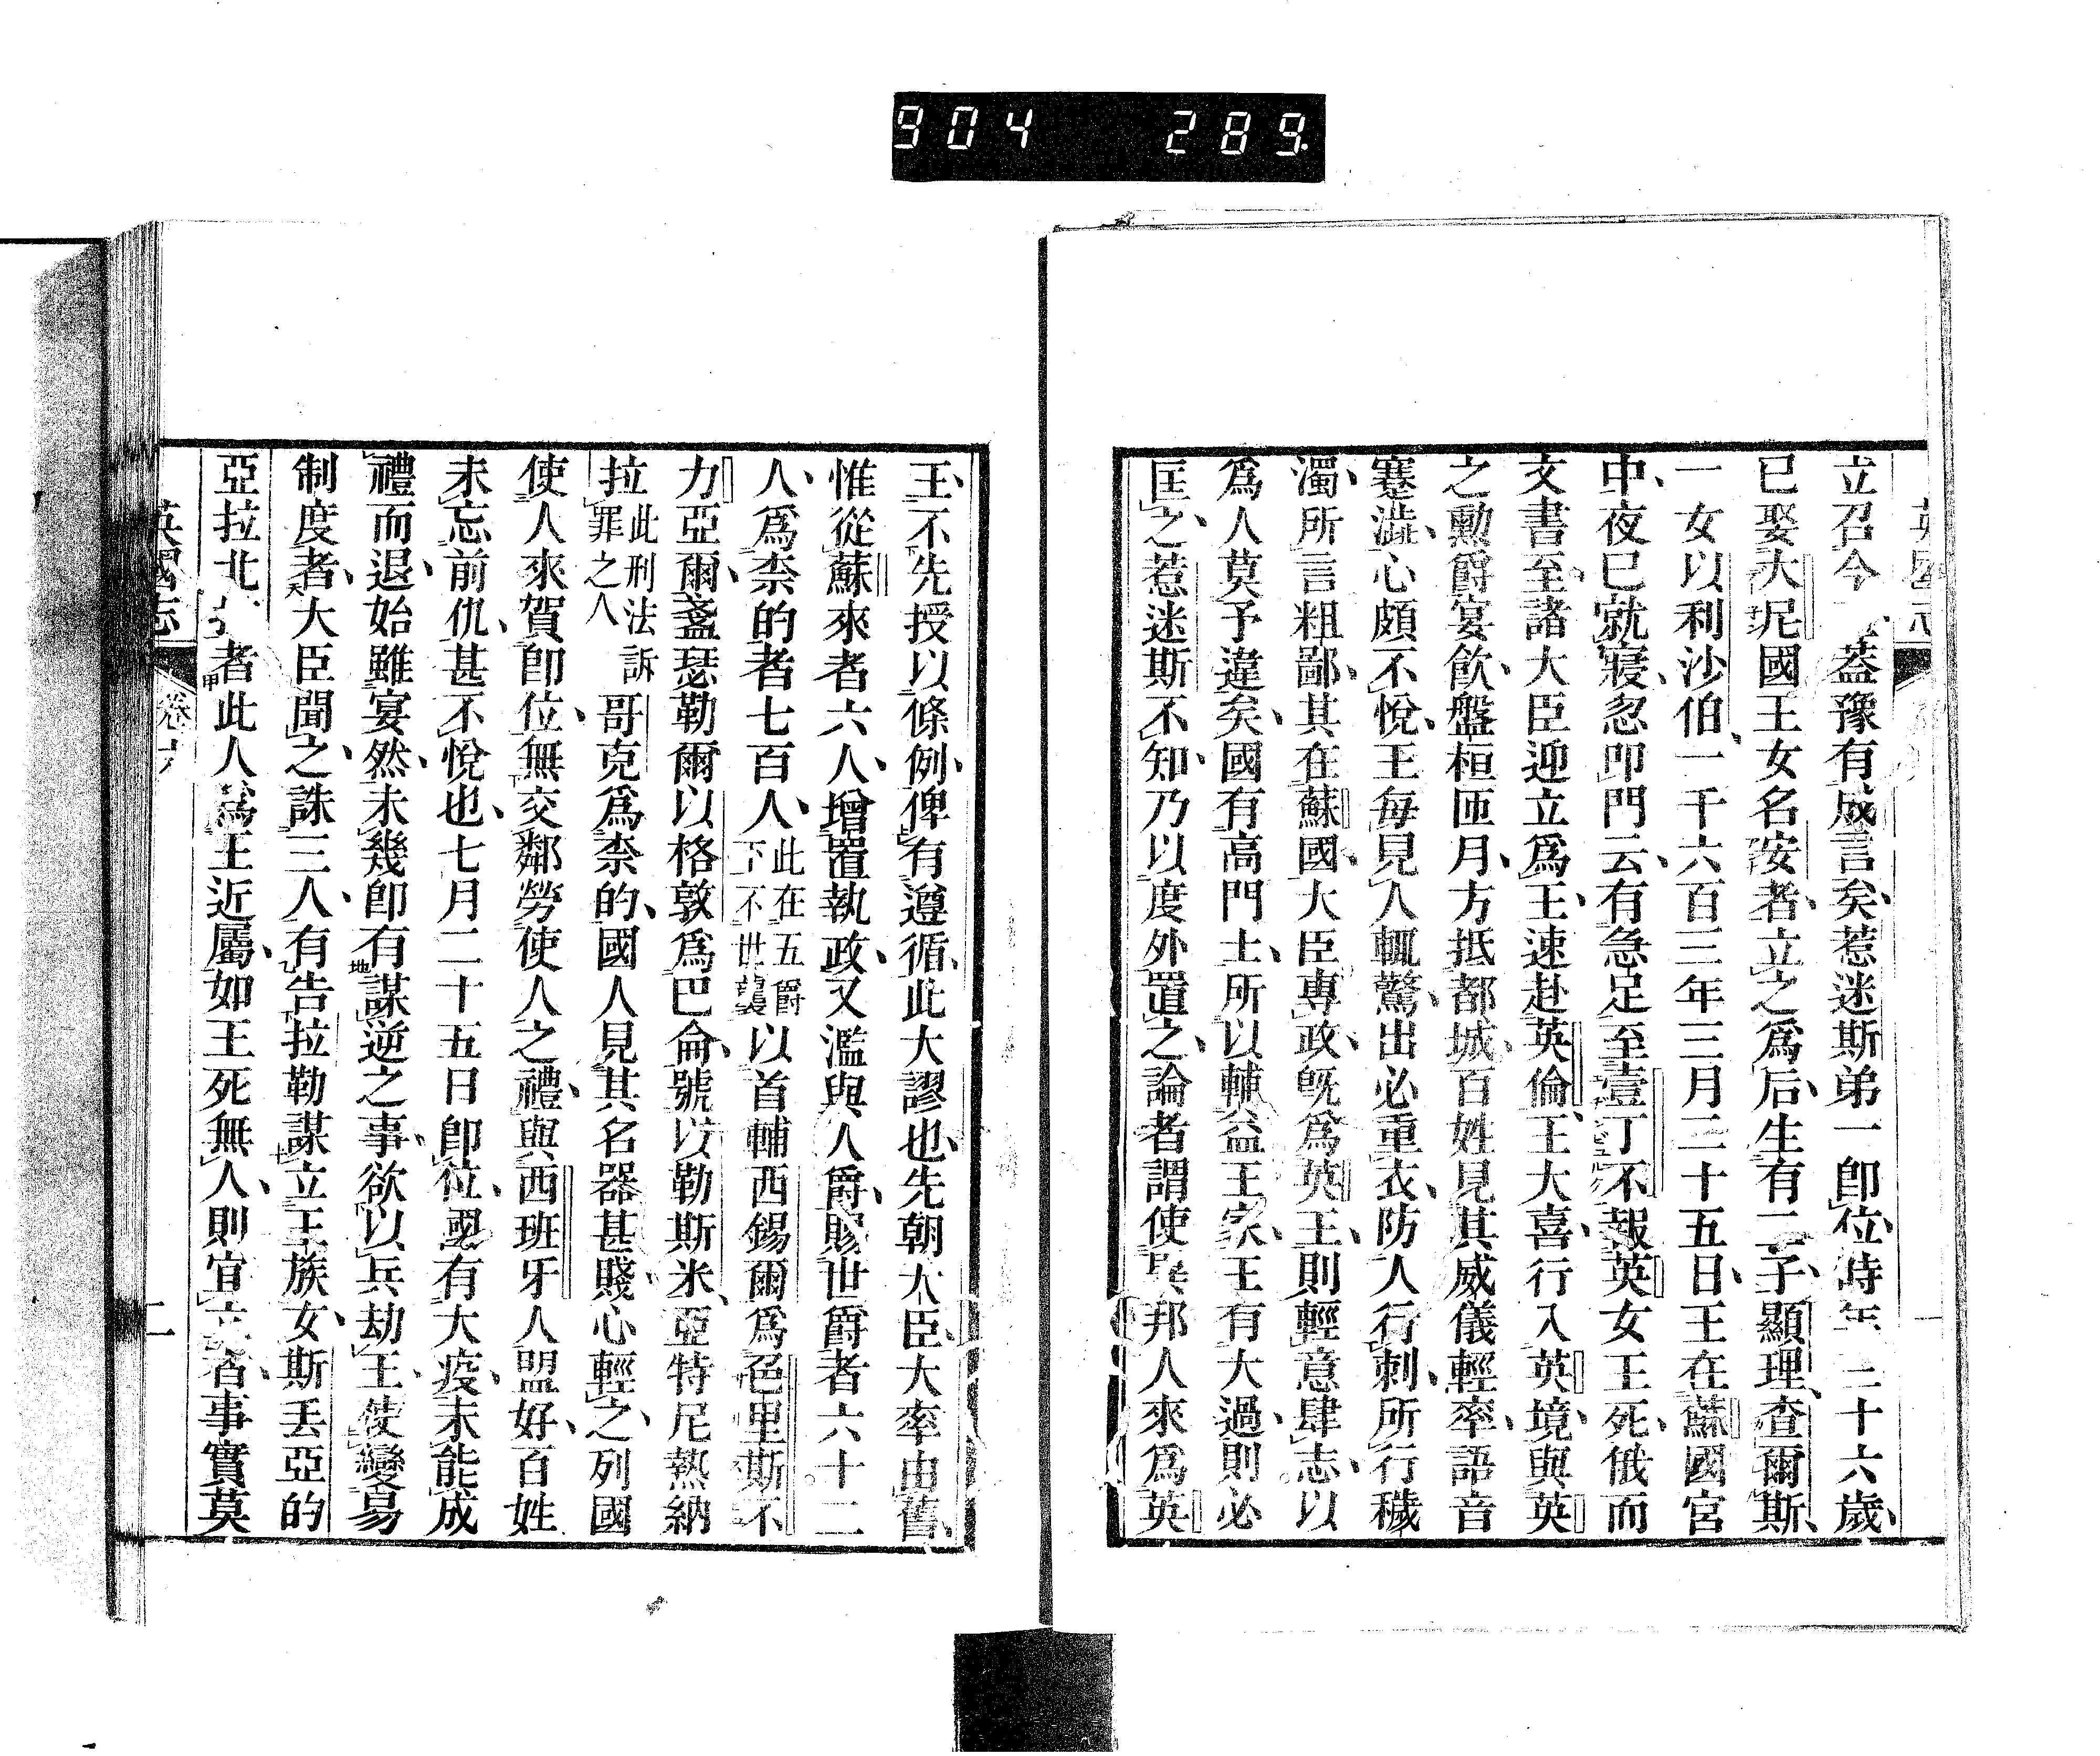 904 289
立召今蓋豫有成言矣、惹迷斯弟一卽位、時年二十六歲、
已娶大尼國王女名安者、立之爲后、生有二子、顯理、查爾斯、
一女以利沙伯、一千六百三年三月二十五日、王在蘇國宮
中、夜已就寢、忽叩門云、有急足至壹丁不報英女王死、俄而
文書至、諸大臣迎立爲王、速赴英倫、王大喜、行入英境、與英
之勳爵宴飮、盤桓匝月、方抵都城、百姓見其威儀輕率、語音
蹇澁、心頗不悅、王每見人輒驚、出必重衣、防人行刺、所行穢
濁、所言粗鄙、其在蘇國、大臣專政、旣爲英王、則輕意肆志、以
爲人莫予違矣、國有高門士、所以輔益王家、王有大過、則必
匡之、惹迷斯不知、乃以度外置之、論者謂使邦人來爲英
王、不先授以條例、俾有遵循、此大謬也、先朝大臣、大率由舊、
惟從蘇來者六人、增置執政、又濫與人爵、賜世爵者六十二
人、爲柰的者七百人、此在五爵下不世襲以首輔西錫爾爲色里斯不
力亞爾、盞瑟勒爾以格敦爲巴侖、號以勒斯米、亞特尼熱納
拉此刑法訴罪之人哥克爲柰的、國人見其名器甚賤、心輕之、列國
使人來賀卽位、無交鄰勞使人之禮、與西班牙人盟好、百姓
未忘前仇、甚不悅也、七月二十五日卽位、國有大疫、未能成
禮而退、始雖宴然、未幾卽有謀逆之事、欲以兵劫王、使變易
制度者、大臣聞之、誅三人、有告拉勒謀立王族女、斯丢亞的
亞拉北者此人爲王近屬、如王死無人、則宜立者、事實莫
英國志 卷六 二